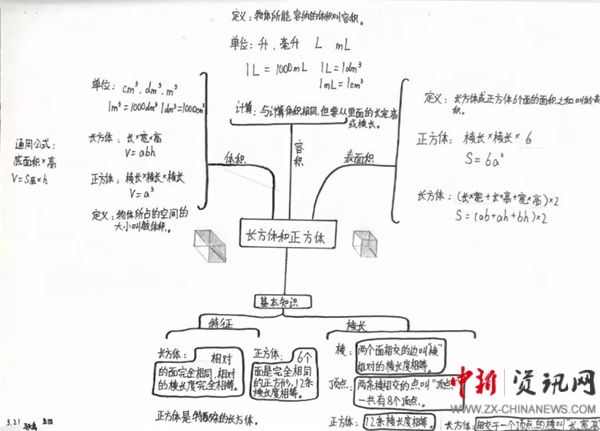 定义：物体所能容纳的体积叫容积。
单位：升、毫升 L mL
1L=1000mL 1L=1dm³
1mL=1cm³
计算：与计算体积相同，但要从里面的长宽高
或棱长。
容积
单位：cm³、dm³、m³
1m³=1000dm³ 1dm³=1000cm³
通用公式：
底面积×高
V=S底×h
长方体：长×宽×高
V=abh
正方体：棱长×棱长×棱长
V=a³
定义：物体所占的空间的
大小叫做体积。
体积
表面积
定义：长方体或正方体6个面的面积之和叫做
积。
正方体：棱长×棱长×6
S=6a²
长方体：(长×宽+长×高+宽×高)×2
S=(ab+ah+bh)×2
长方体和正方体
基本知识
特征
棱长
长方体：相对
的面完全相同，相对
的棱长度完全相等。
正方体：6个
面是完全相同
的正方形，12条
棱长度相等。
正方体是特殊的长方体。
棱：两个面相交的边叫"棱"
相对的棱长度相等。
顶点：两条棱相交的点叫"顶点"
一共有8个顶点。
正方体：12条棱长度相等。
长方体：相交于一个顶点的棱叫"长、宽、高
3.21
中新资讯网
WWW.ZX-CHINANEWS.COM